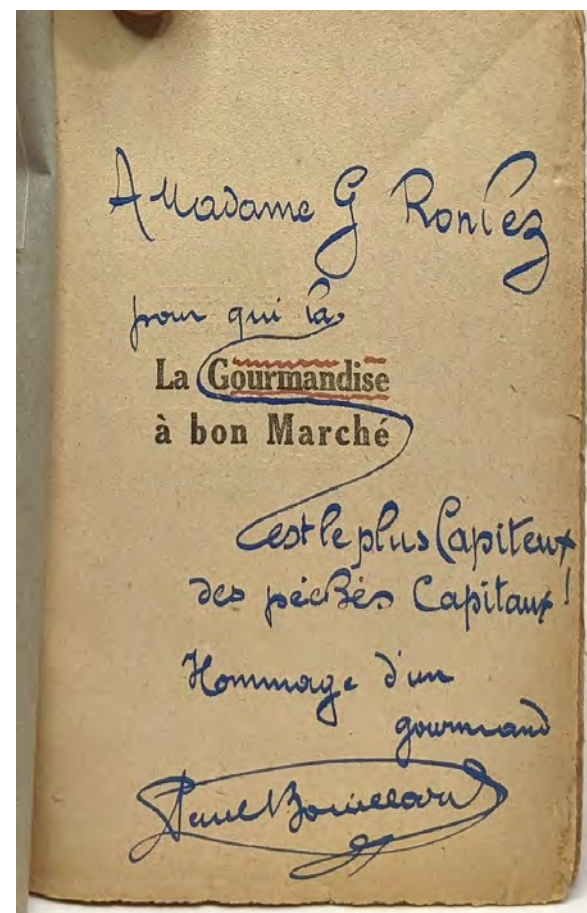 A Madame G Roniez
pour qui la
La Gourmandise
à bon Marché
est le plus Capiteux
des péchés Capitaux !
Hommage d'un
gourmand
Paul Bouillard